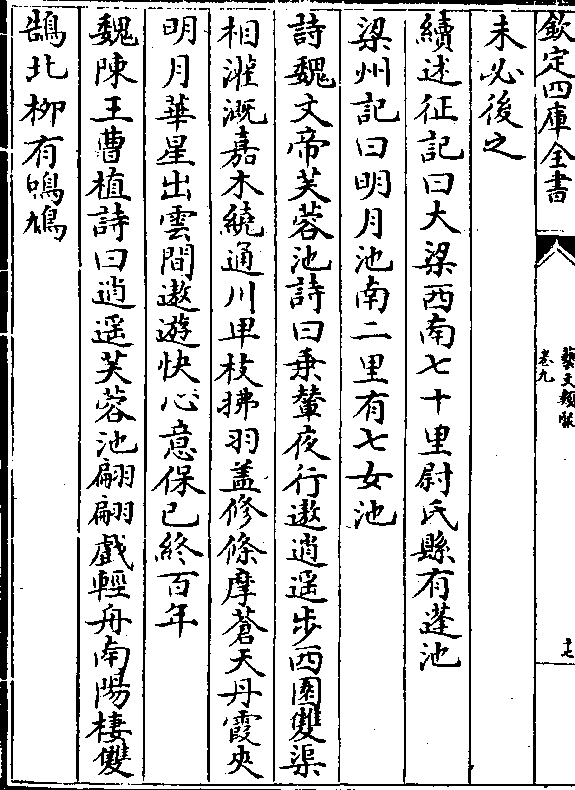 欽定四庫全書
藝文類聚
卷九
十七
未必後之
續述征記曰大梁西南七十里尉氏縣有蓬池
梁州記曰明月池南二里有七女池
詩魏文帝芙蓉池詩曰乗輦夜行遨逍遥步西園雙渠
相灌溉嘉木繞通川卑枝拂羽盖修條摩蒼天丹霞夾
明月華星出雲間遨遊快心意保已終百年
魏陳王曹植詩曰逍遥芙蓉池翩翩戲輕舟南陽棲雙
鵠北栁有鳴鳩